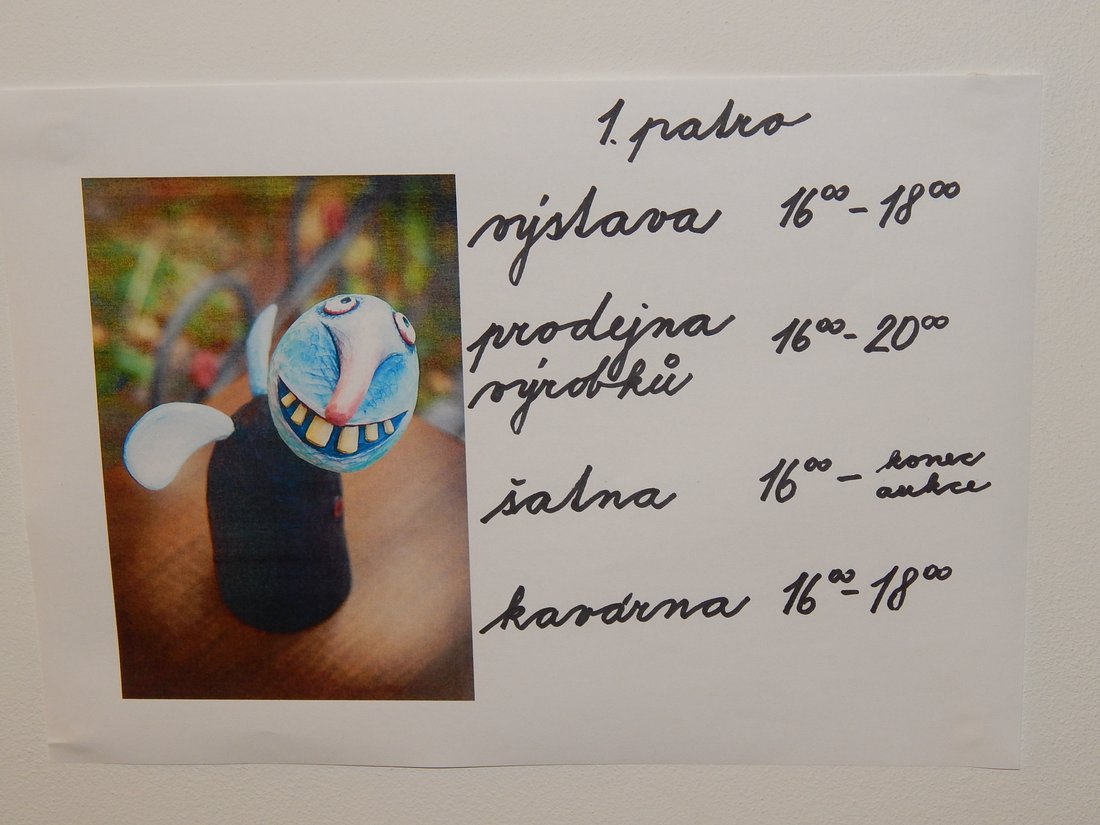 1. patro
výstava 16⁰⁰ - 18⁰⁰
prodejna 16⁰⁰ - 20⁰⁰
výrobků
šatna 16⁰⁰ - konec
aukce
kavárna 16⁰⁰ - 18⁰⁰